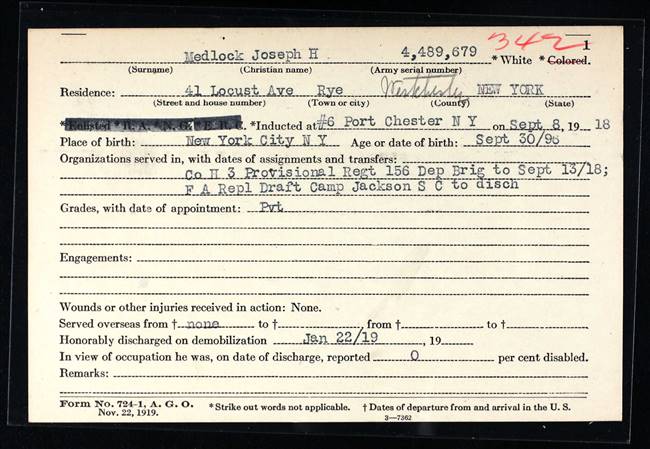 342 1
Medlock Joseph H 4,489,679 * White * Colored.
(Surname) (Christian name) (Army serial number)
Residence: 41 Locust Ave Rye Westchester NEW YORK
(Street and house number) (Town or city) (County) (State)
* Enlisted * R. A. * N. G. * E. R. C. * Inducted at #6 Port Chester N Y on Sept 8, 19 18
Place of birth: New York City N Y Age or date of birth: Sept 30/96
Organizations served in, with dates of assignments and transfers:
Co H 3 Provisional Regt 156 Dep Brig to Sept 13/18;
F A Repl Draft Camp Jackson S C to disch
Grades, with date of appointment: Pvt
Engagements:
Wounds or other injuries received in action: None.
Served overseas from † none to †, from † to †
Honorably discharged on demobilization Jan 22/19, 19
In view of occupation he was, on date of discharge, reported 0 per cent disabled.
Remarks:
Form No. 724-1, A. G. O. * Strike out words not applicable. † Dates of departure from and arrival in the U. S.
Nov. 22, 1919. 3—7362